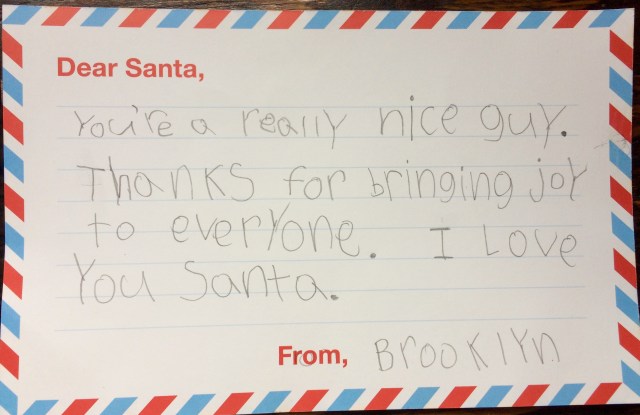 Dear Santa,
You're a really nice guy.
Thanks for bringing joy
to everyone. I Love
You Santa.
From, Brooklyn